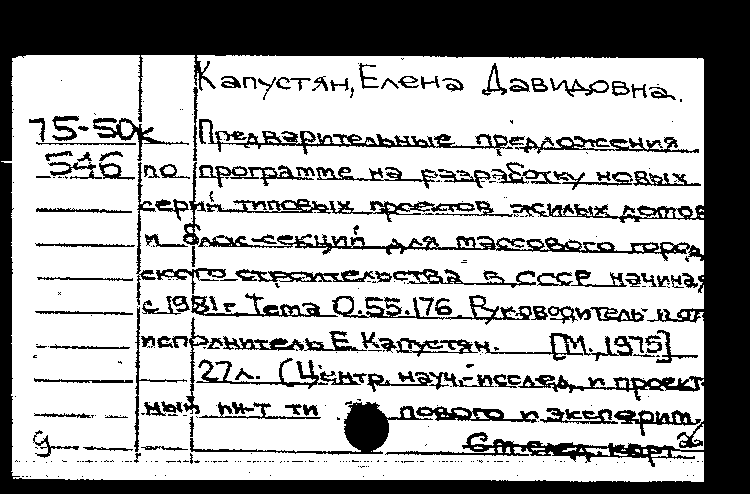 Капустян, Елена Давидовна.
75-50к Предварительные предложения
546 по программе на разработку новых
серий типовых проектов жилых домов
и блок-секций для массового город
ского строительства в СССР начиная
с 1981 г. Тема 0.55.176. Руководитель и от
исполнитель Е. Капустян. [М., 1975]
27 л. (Центр. науч.-исслед. и проект
ный ин-т ти пового и эксперим.
g См. след. карт.